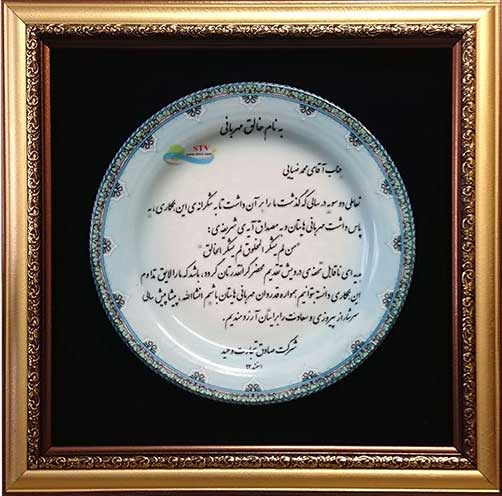 به نام خالق مهربانی
STV
جناب آقای محمد ضیایی
تعاملی دو سویه در سالی که گذشت ما را بر آن داشت تا به شکرانه‌ی این همکاری، به
پاس داشت مهربانی هایتان و به مصداق آیه ی شریفه ی :
"من لم یشکر المخلوق لم یشکر الخالق"
هدیه ای ناقابل تحفه ی درویش تقدیم محضر گرانقدرتان گردد، باشد که ما را لایق تداوم
این همکاری دانسته توانیم همواره قدردان مهربانی هایتان باشیم انشاالله، پیشاپیش سالی
سرشار از پیروزی و سعادت را برایتان آرزومندیم.
شرکت صادق تجارت وحید
اسفند ۹۲